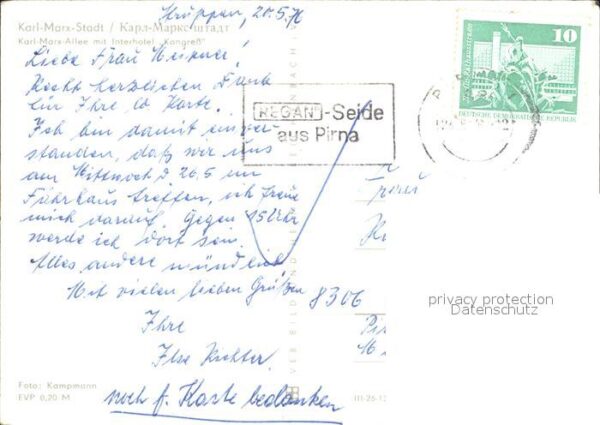 Struppen, 20.5.76
Karl-Marx-Stadt / Карл-Маркс-Штадт
Karl-Marx-Allee mit Interhotel „Kongreß“
Liebe Frau
Recht herzlichen Dank
für Ihre lb Karte.
Ich bin damit einver-
standen, daß wir uns
am Mittwoch d 26.5 im
Fährhaus treffen, ich freue
mich darauf. Gegen 15 Uhr
werde ich dort sein.
Alles andere mündlich
Mit vielen lieben Grüßen
Ihre
Ilse Richter.
noch f. Karte bedanken
Foto: Kampmann
EVP 0,20 M
VEB BILD UND
REGAN-Seide
aus Pirna
10
DEUTSCHE DEMOKRATISCHE REPUBLIK
8306
Pir
privacy protection
Datenschutz